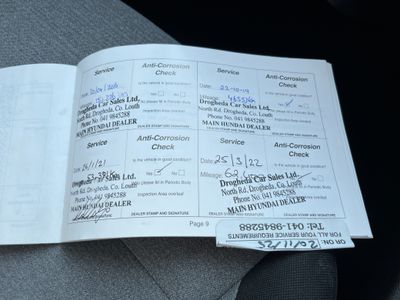 Service
Anti-Corrosion
Check
Is the vehicle in good condition?
Yes No
please fill in Periodic Body
Inspection Area overleaf
Drogheda Car Sales Ltd,
North Rd, Drogheda, Co. Louth
Phone No. 041 9845288
MAIN HYUNDAI DEALER
DEALER STAMP AND SIGNATURE
Service
Anti-Corrosion
Check
Date: 22-10-19
Is the vehicle in good condition?
Mileage:
Yes No
Drogheda Car Sales Ltd,
North Rd, Drogheda, Co. Louth
Phone No. 041 9845288
MAIN HYUNDAI DEALER
DEALER STAMP AND SIGNATURE
Service
Anti-Corrosion
Check
/1/21
Is the vehicle in good condition?
Yes No
please fill in Periodic Body
Inspection Area overleaf
Drogheda Car Sales Ltd,
North Rd, Drogheda, Co. Louth
Phone No. 041 9845288
MAIN HYUNDAI DEALER
DEALER STAMP AND SIGNATURE
Service
Anti-Corrosion
Check
Date: 25/3/22
Is the vehicle in good condition?
Mileage:
Yes No
please fill in Periodic Body
Inspection Area overleaf
Drogheda Car Sales Ltd,
North Rd, Drogheda, Co. Louth
Phone No. 041 9845288
MAIN HYUNDAI DEALER
DEALER STAMP AND SIGNATURE
Page 9
OR ON:
FOR ALL YOUR SERVICE REQUIREMENTS
Tel: 041-9845288